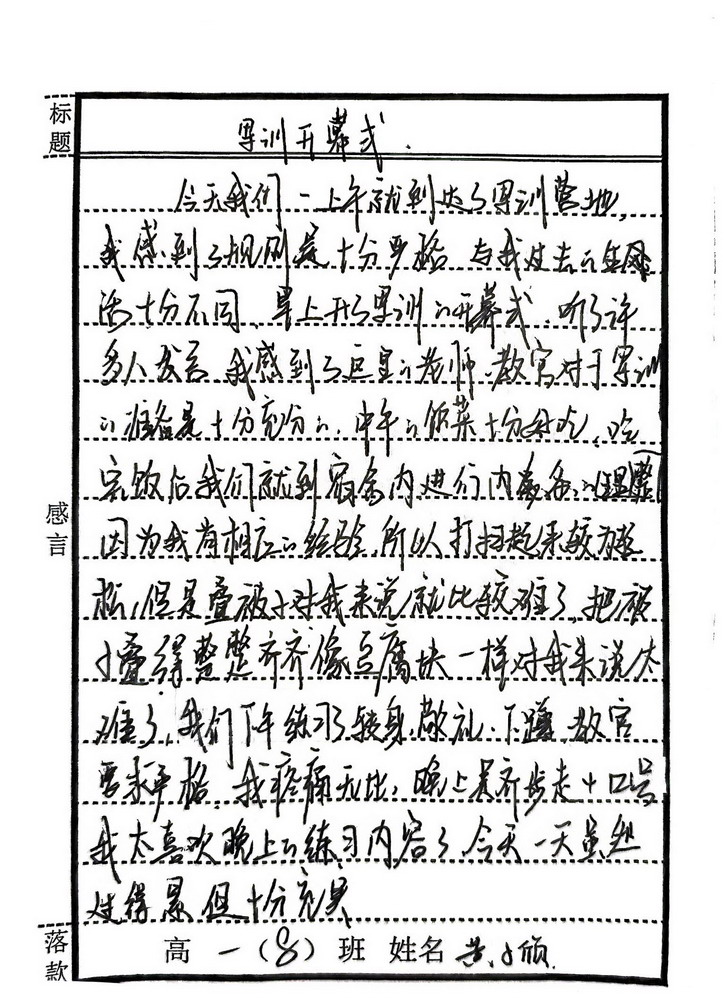 标题
军训开幕式.
今天我们一上午就到达了军训营地,
我感到了规则是十分严格,与我过去的生
活十分不同,早上开了军训的开幕式,听了许
多人发言,我感到了这里的老师、教官对于军训
的准备是十分充分的,中午的饭菜十分好吃,吃
完饭后我们就到宿舍内进行内务的整
因为我有相应的经验,所以打扫起来较为轻
松,但是叠被子对我来说就比较难了,把被
子叠得整整齐齐像豆腐块一样对我来说太
难了,我们下午练习了转身、敬礼、下蹲,教官
要求严格,我疼痛无比,晚上是齐步走+口号
我太喜欢晚上的练习内容了,今天一天虽然
过得累但十分充实
感言
落款
高一(8)班 姓名 黄小颀